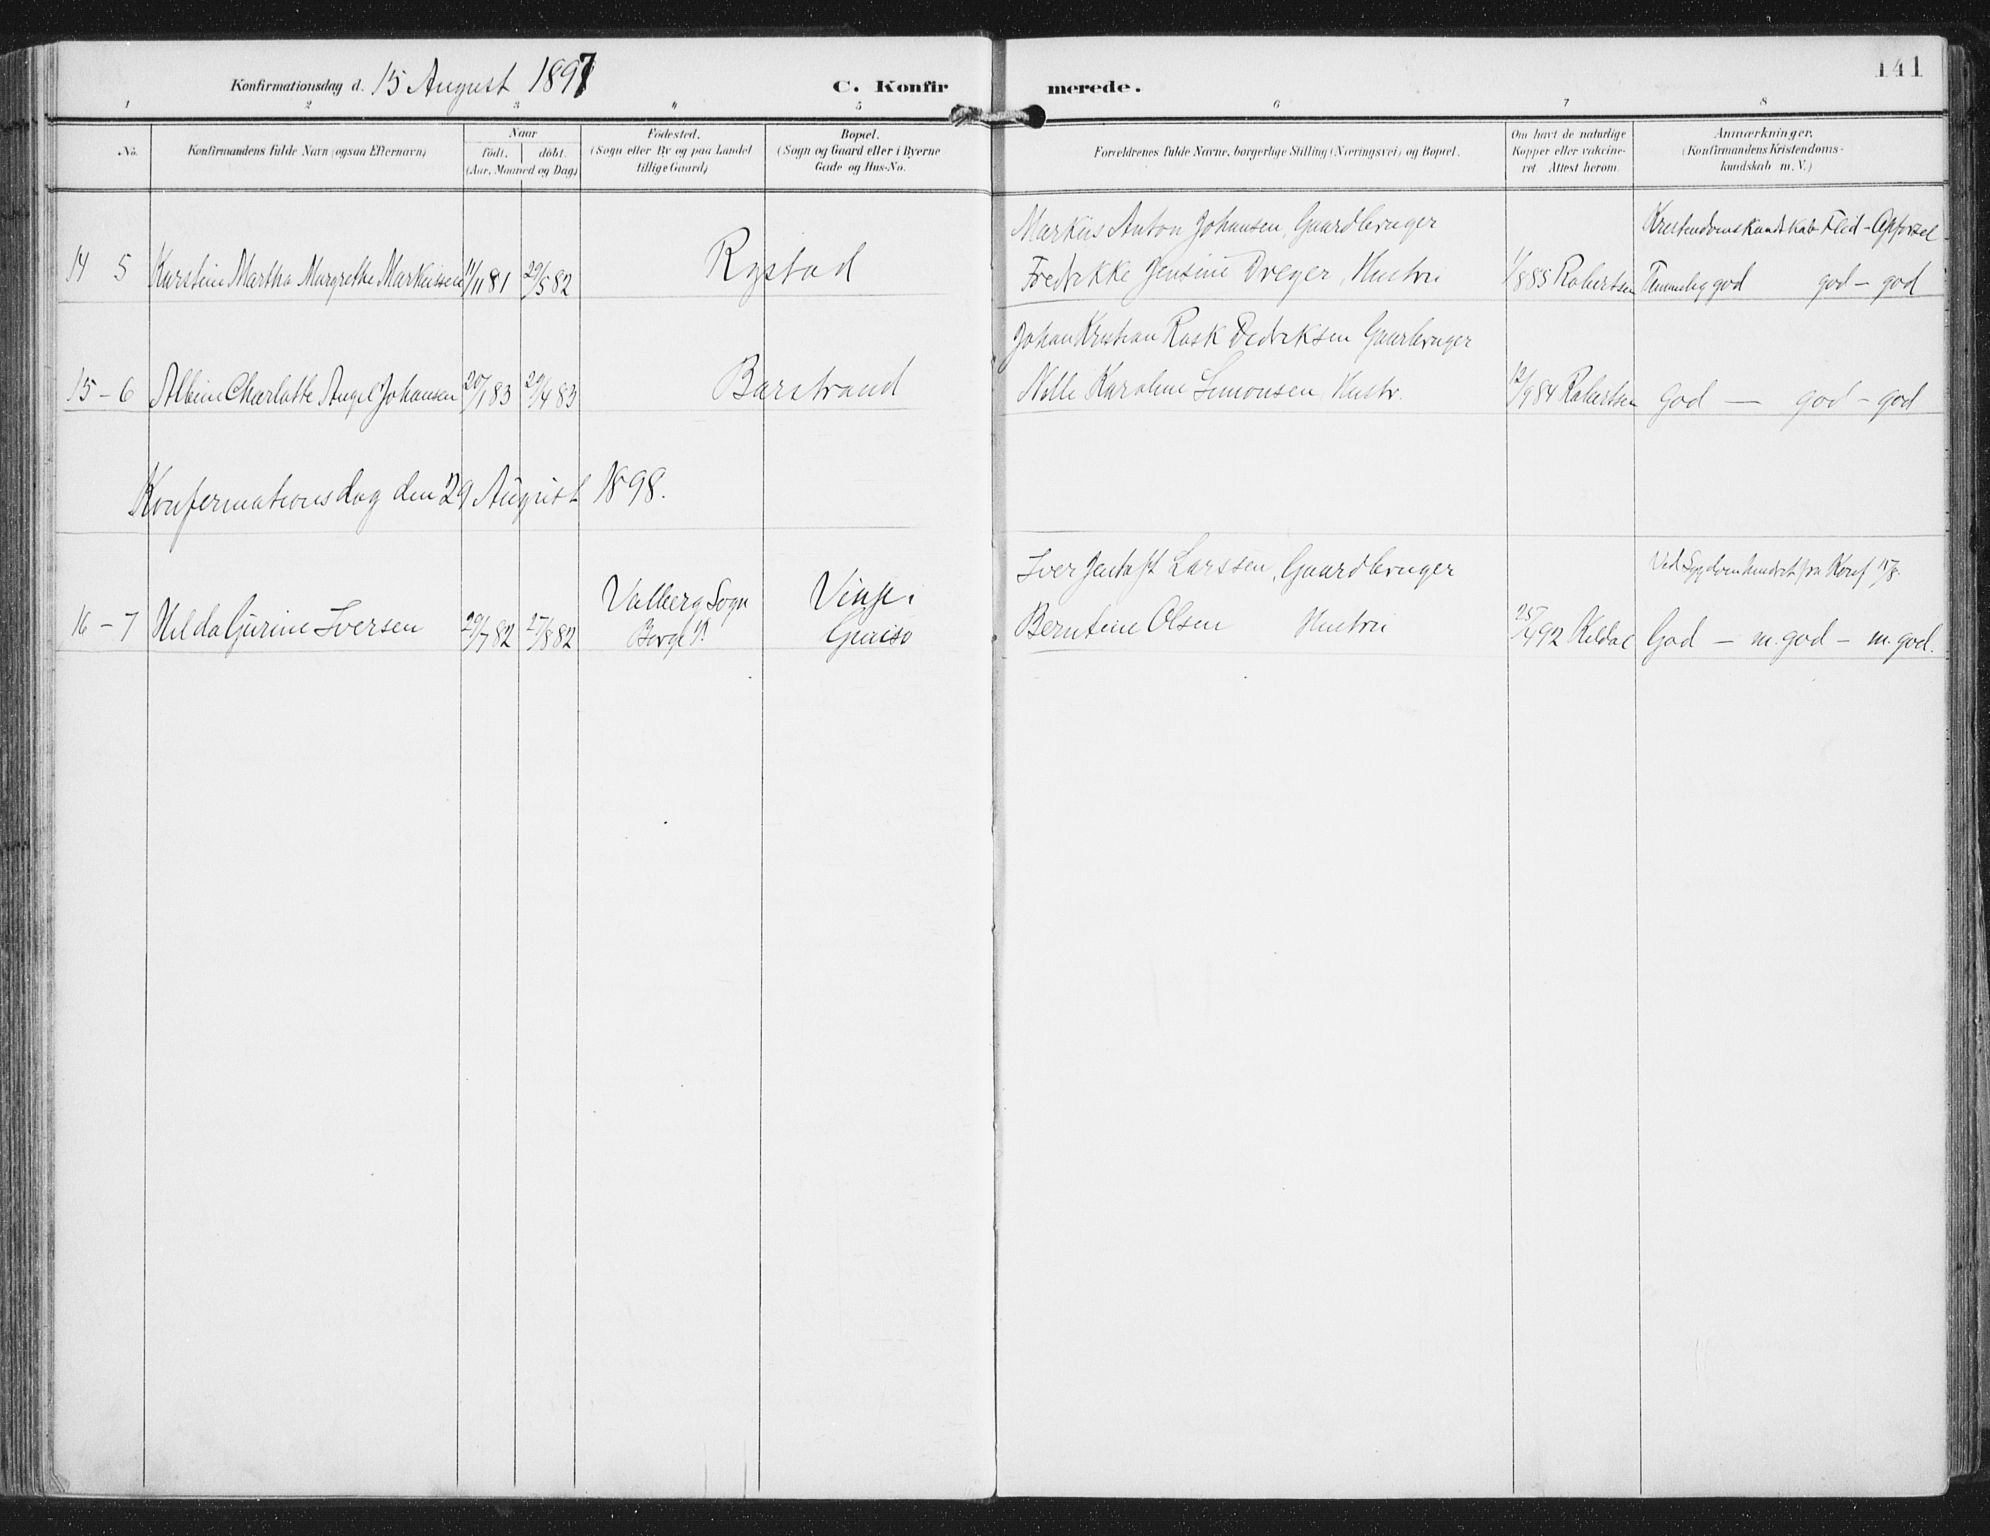 141
Konfirmationsdag d. 15 August 1897
C. Konfirmerede.
1 2 3 4 5 6 7 8
No.
Konfirmandens fulde Navn (ogsaa Efternavn)
Naar
født. døbt.
(Aar, Maaned og Dag)
Fødested.
(Sogn eller By og paa Landet
tillige Gaard)
Bopæl.
(Sogn og Gaard eller i Byerne
Gade og Hus-No.
Forældrenes fulde Navne, borgerlige Stilling (Næringsvei) og Bopæl.
Om havt de naturlige
Kopper eller vakcine-
ret. Attest herom.
Anmærkninger.
(Konfirmandens Kristendoms-
kundskab m. V.)
Markus Anton Johansen, Gaardbruger
Kristendomskundskab Flid - Opførsel
14 5 Karstine Martha Margrethe Markussen 11/11 81 29/5 82 Rystad
Fredrikke Jensine Dreyer, Hustru 1/8 85 Robertsen Temmelig god god - god
Johan Kristian Rask Dedriksen Gaarbruger
15 - 6 Albine Charlotte Angel Johansen 20/1 83 29/4 83 Barstrand
Karoline Simonsen, Hustr. 12/9 84 Robertsen God - god - god
Konfermationsdag den 29 August 1898.
Iver Jentoft Larssen, Gaardbruger
Ved Sygdom hindret fra Konf 15/8.
Valberg Sogn
16 - 7 Hilda Gurine Iversen 29/7 82 27/8 82
Borge P.
Berntine Olsen Hustru 25/4 92 Kildal God - m. god - m. god.